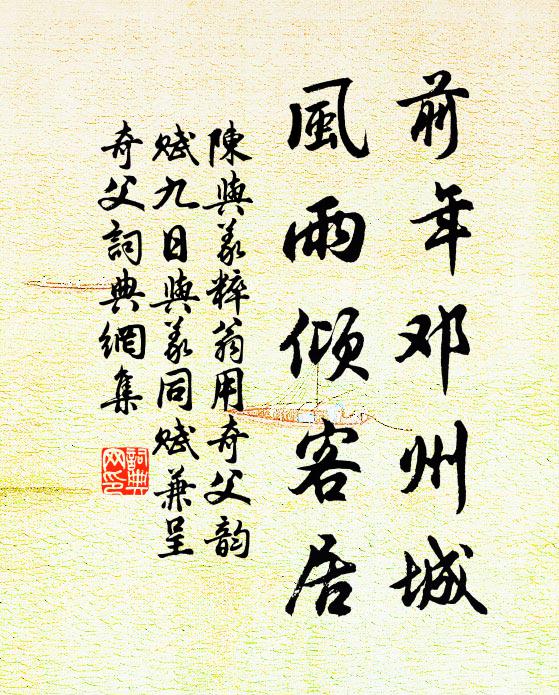 前年邓州城
風雨傾客居
陳與義粹翁用奇父韵
賦九日與義同賦兼呈
奇父詞典網集
詞典網印